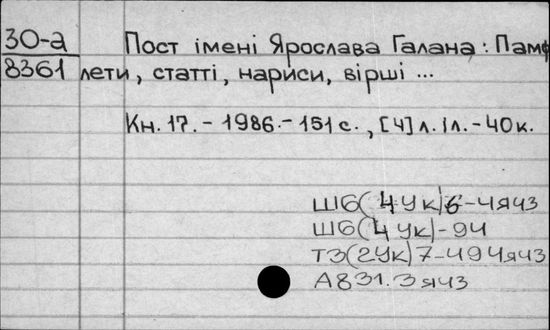 30-а Пост імені Ярослава Галана: Памф
8361 лети, статті, нариси, вірші ...
Кн. 17. - 1986. - 151 с., [4] л. іл. - 40 к.
Ш6(4Ук)6-4я43
Ш6(4Ук)-94
Т3(2Ук)7-494я43
А831.3я43